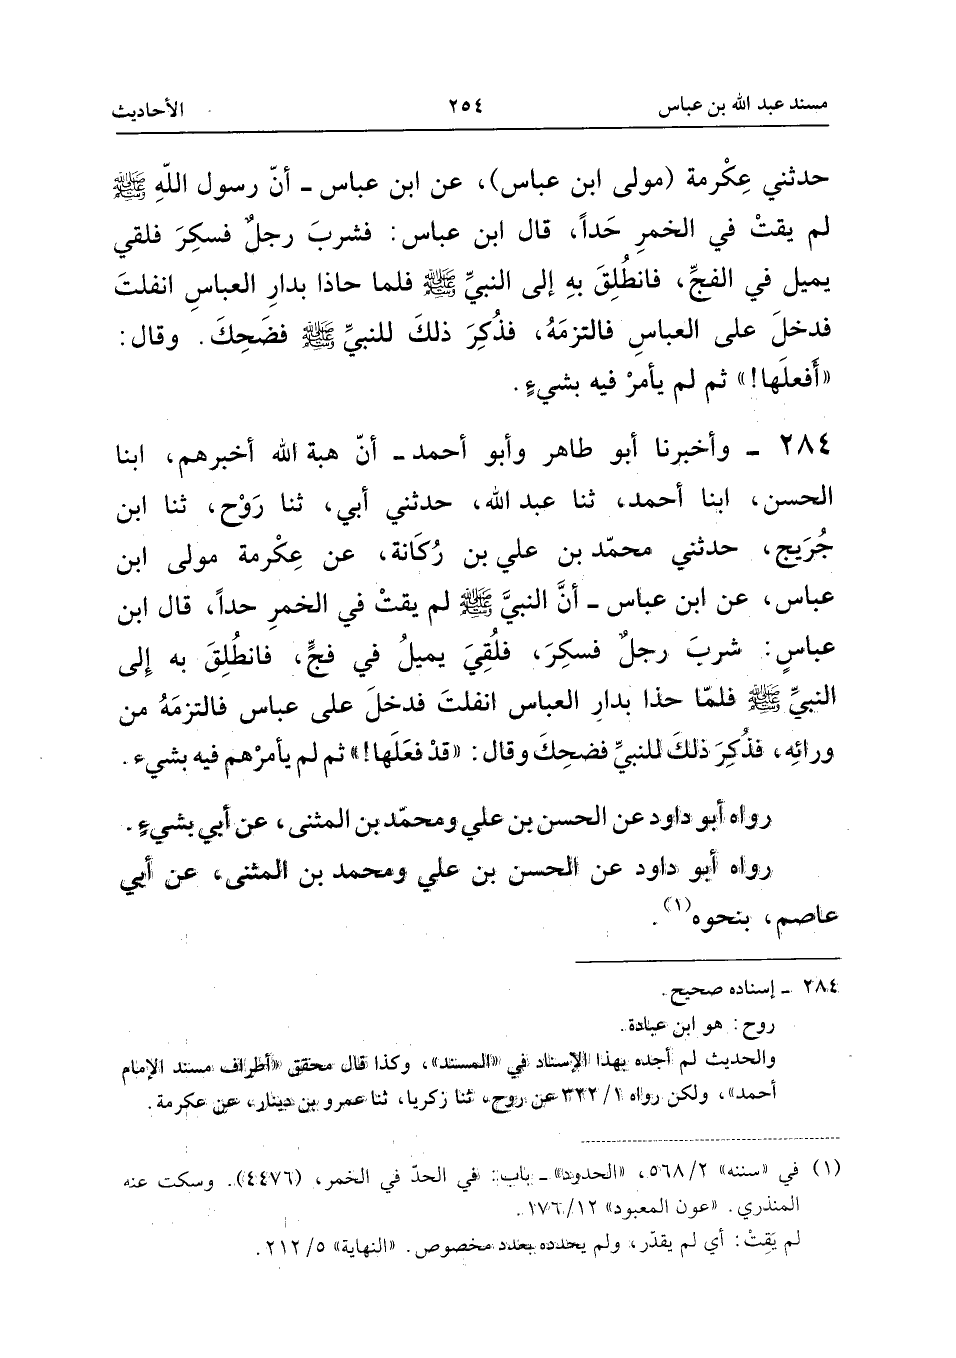 مسند عبد الله بن عباس ٢٥٤ الأحاديث
حدثني عِكْرمة (مولى ابن عباس)، عن ابن عباس ـ أنّ رسول اللّهِ ﷺ
لم يقتْ في الخمرِ حَداً، قال ابن عباس: فشربَ رجلٌ فسكِرَ فلقي
يميل في الفجِّ، فانطُلِقَ بهِ إلى النبيِّ ﷺ فلما حاذا بدارِ العباسِ انفلتَ
فدخلَ على العباسِ فالتزمَهُ، فذُكِرَ ذلكَ للنبيِّ ﷺ فضَحِكَ. وقال:
«أَفعلَها!» ثم لم يأمرْ فيه بشيءٍ.
٢٨٤ ـ وأخبرنا أبو طاهر وأبو أحمد ـ أنّ هبة الله أخبرهم، ابنا
الحسن، ابنا أحمد، ثنا عبد الله، حدثني أبي، ثنا رَوْح، ثنا ابن
جُرَيج، حدثني محمّد بن علي بن رُكَانة، عن عِكْرمة مولى ابن
عباس، عن ابن عباس ـ أنَّ النبيَّ ﷺ لم يقتْ في الخمرِ حداً، قال ابن
عباسٍ: شربَ رجلٌ فسكِرَ، فلُقِيَ يميلُ في فجٍّ، فانطُلِقَ به إِلى
النبيِّ ﷺ فلمّا حذا بدارِ العباس انفلتَ فدخلَ على عباس فالتزمَهُ من
ورائِه، فذُكِرَ ذلكَ للنبيِّ فضحِكَ وقال: «قدْ فعَلَها!» ثم لم يأمرْهم فيه بشيء.
رواه أبو داود عن الحسن بن علي ومحمّد بن المثنى، عن أبي بشيءٍ.
رواه أبو داود عن الحسن بن علي ومحمد بن المثنى، عن أبي
عاصم، بنحوه(١).
٢٨٤ ـ إسناده صحيح.
روح: هو ابن عبادة.
والحديث لم أجده بهذا الإسناد في «المسند»، وكذا قال محقق «أطراف مسند الإمام
أحمد»، ولكن رواه ١/ ٣٢٢ عن روح، ثنا زكريا، ثنا عمرو بن دينار، عن عكرمة.
(١) في «سننه» ٢/ ٥٦٨، «الحدود» ـ باب: في الحدّ في الخمر، (٤٤٧٦). وسكت عنه
المنذري. «عون المعبود» ١٢/ ١٧٦.
لم يَقِتْ: أي لم يقدّر، ولم يحدده بعدد مخصوص. «النهاية» ٥/ ٢١٢.